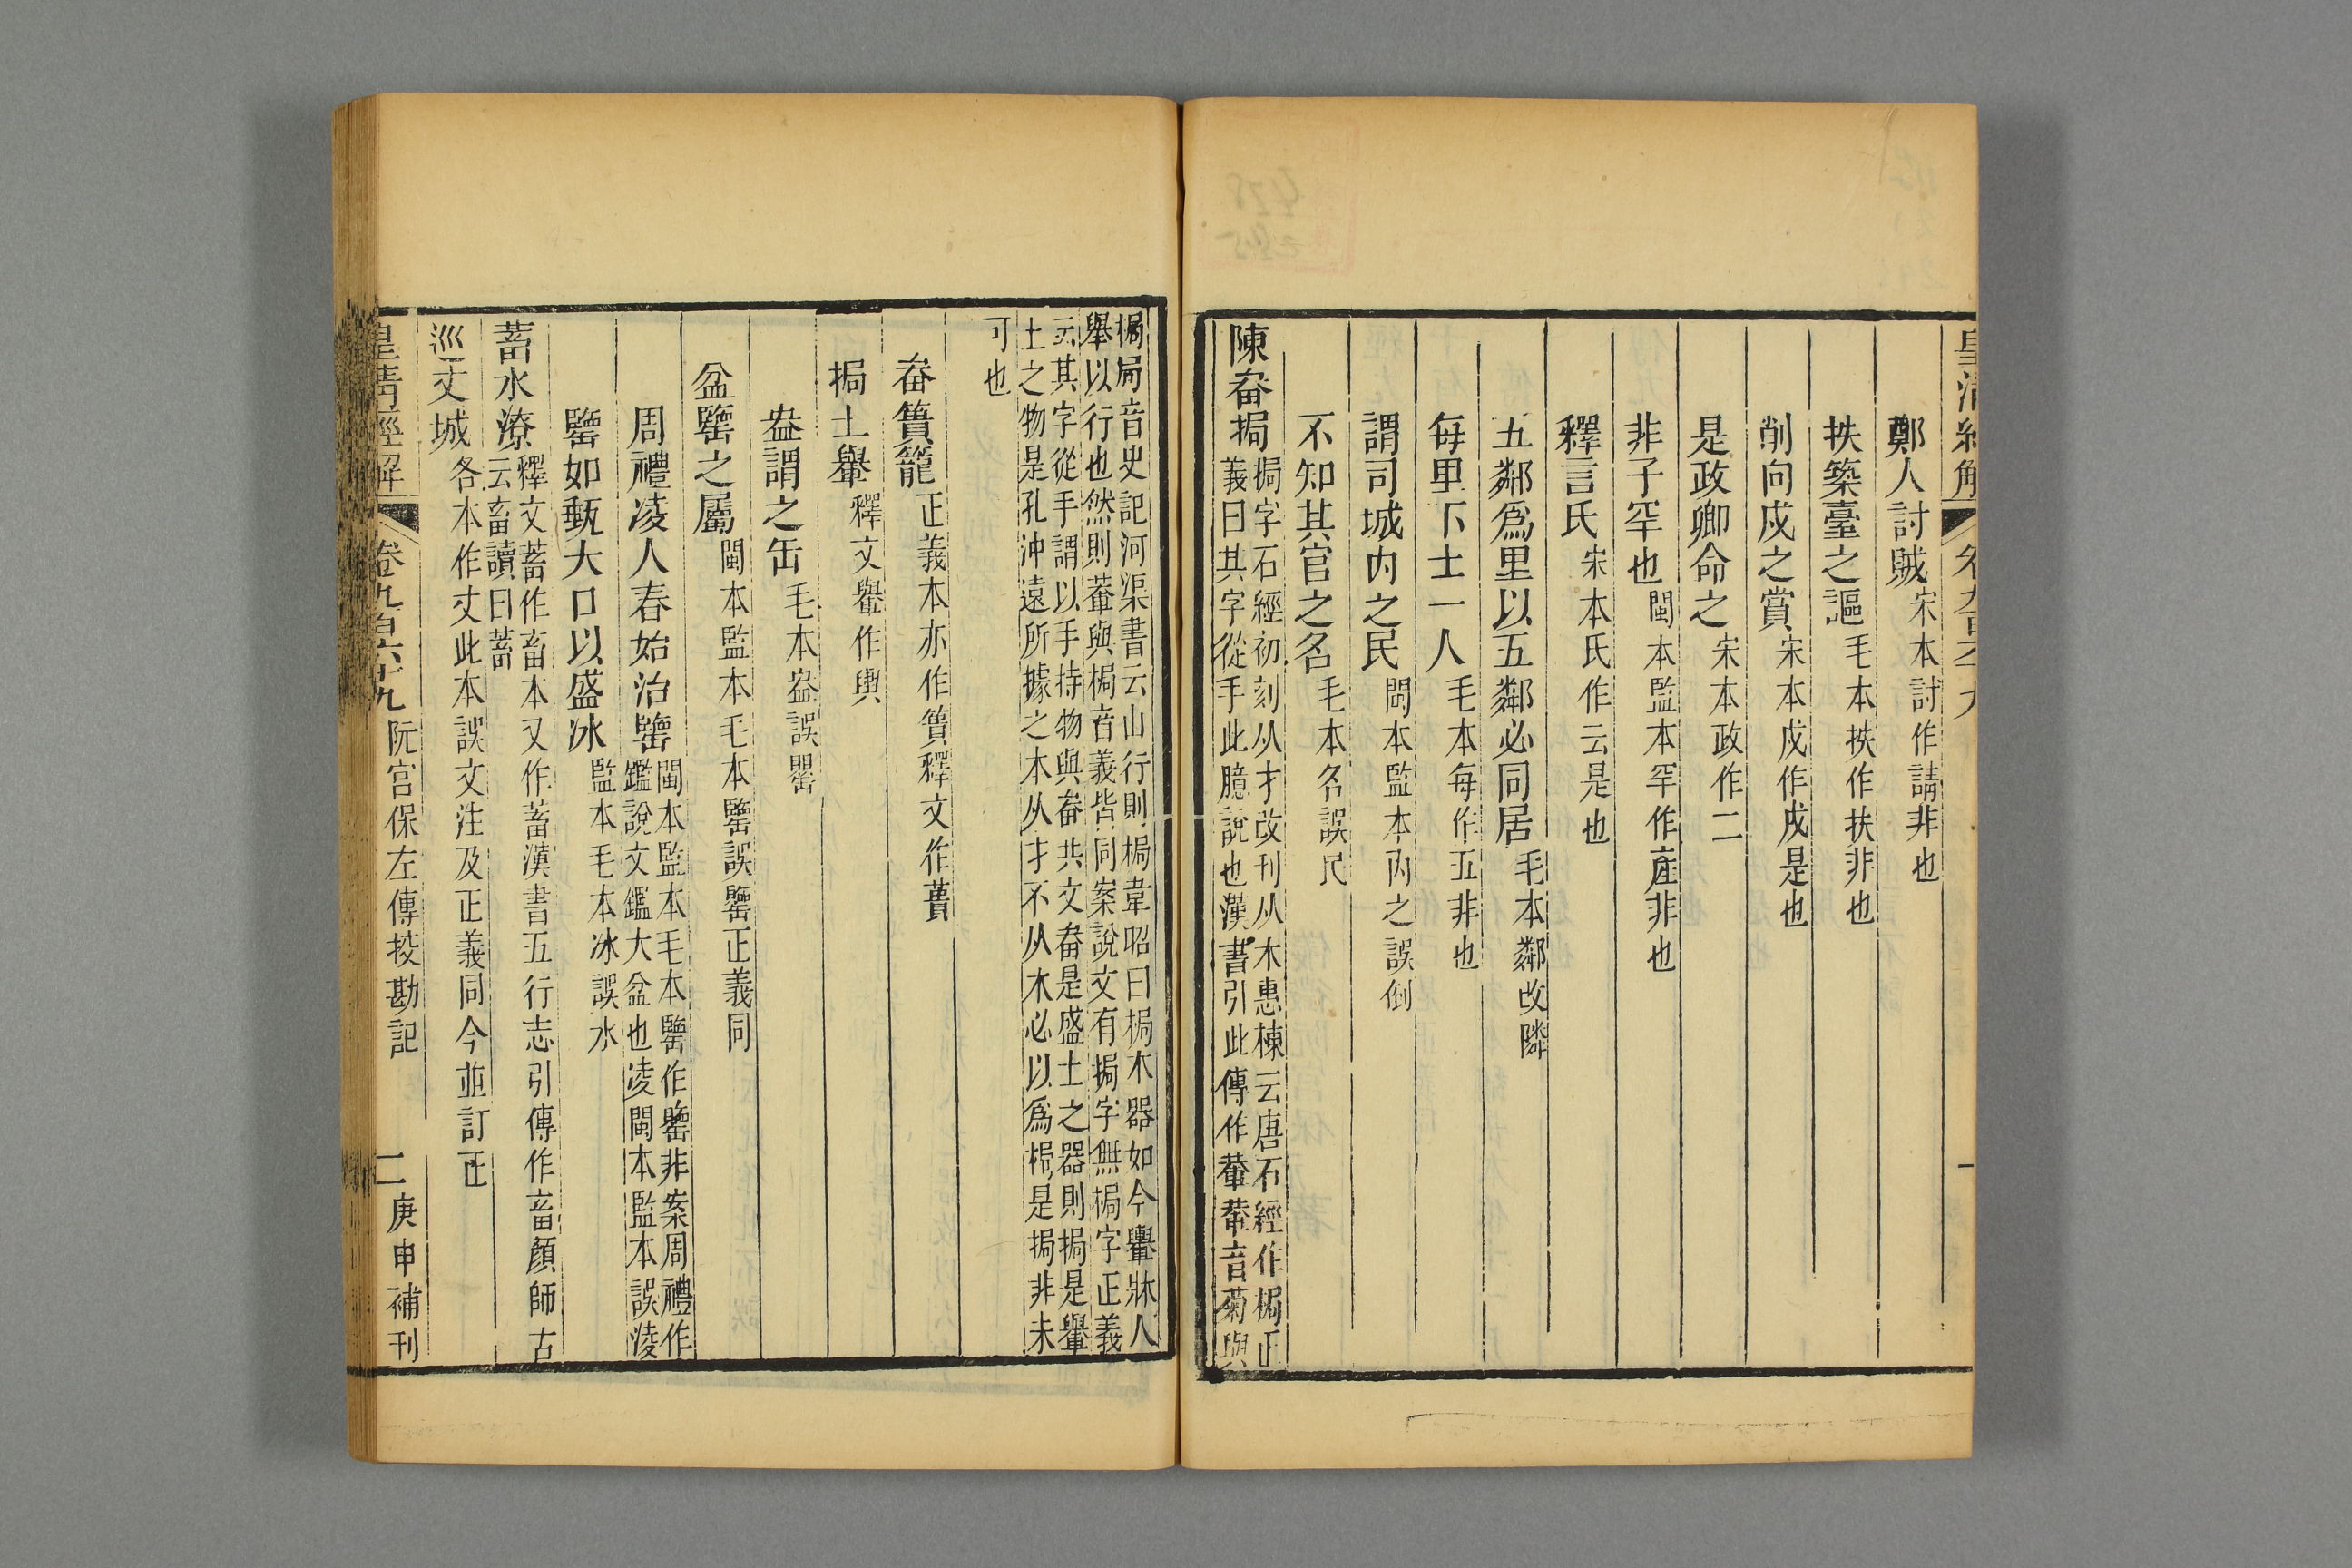 鄭人討賊宋本討作請非也
抶築臺之謳毛本抶作扶非也
削向戌之賞宋本戌作戍是也
是政卿命之宋本政作二
非子罕也閩本監本罕作産非也
釋言氏宋本氏作云是也
五鄰爲里以五鄰必同居毛本鄰改隣
每里下士一人毛本每作五非也
謂司城内之民閩本監本内之誤倒
不知其官之名毛本名誤民
陳畚挶挶字石經初刻从才改刊从木惠棟云唐石經作梮正
義曰其字從手此臆說也漢書引此傳作輂輂音菊與
梮局音史記河渠書云山行則梮韋昭曰梮木器如今轝牀人
舉以行也然則輂與梮音義皆同案說文有挶字無梮字正義
云其字從手謂以手持物與畚共文畚是盛土之器則挶是轝
土之物是孔沖遠所據之本从才不从木必以爲梮是挶非未
可也
畚簣籠正義本亦作簣釋文作蕢
挶土轝釋文轝作輿
盎謂之缶毛本盎誤罌
盆罌之屬閩本監本毛本罌誤甖正義同
周禮凌人春始治鑑閩本監本毛本鑑作罌非案周禮作
鑑說文鑑大盆也凌閩本監本誤淩
鑑如甀大口以盛冰監本毛本冰誤水
蓄水潦釋文蓄作畜本又作蓄漢書五行志引傳作畜顏師古
云畜讀曰蓄
巡丈城各本作丈此本誤文注及正義同今並訂正
皇清經解 卷九百六十九 阮宮保左傳挍勘記 二 庚申補刊